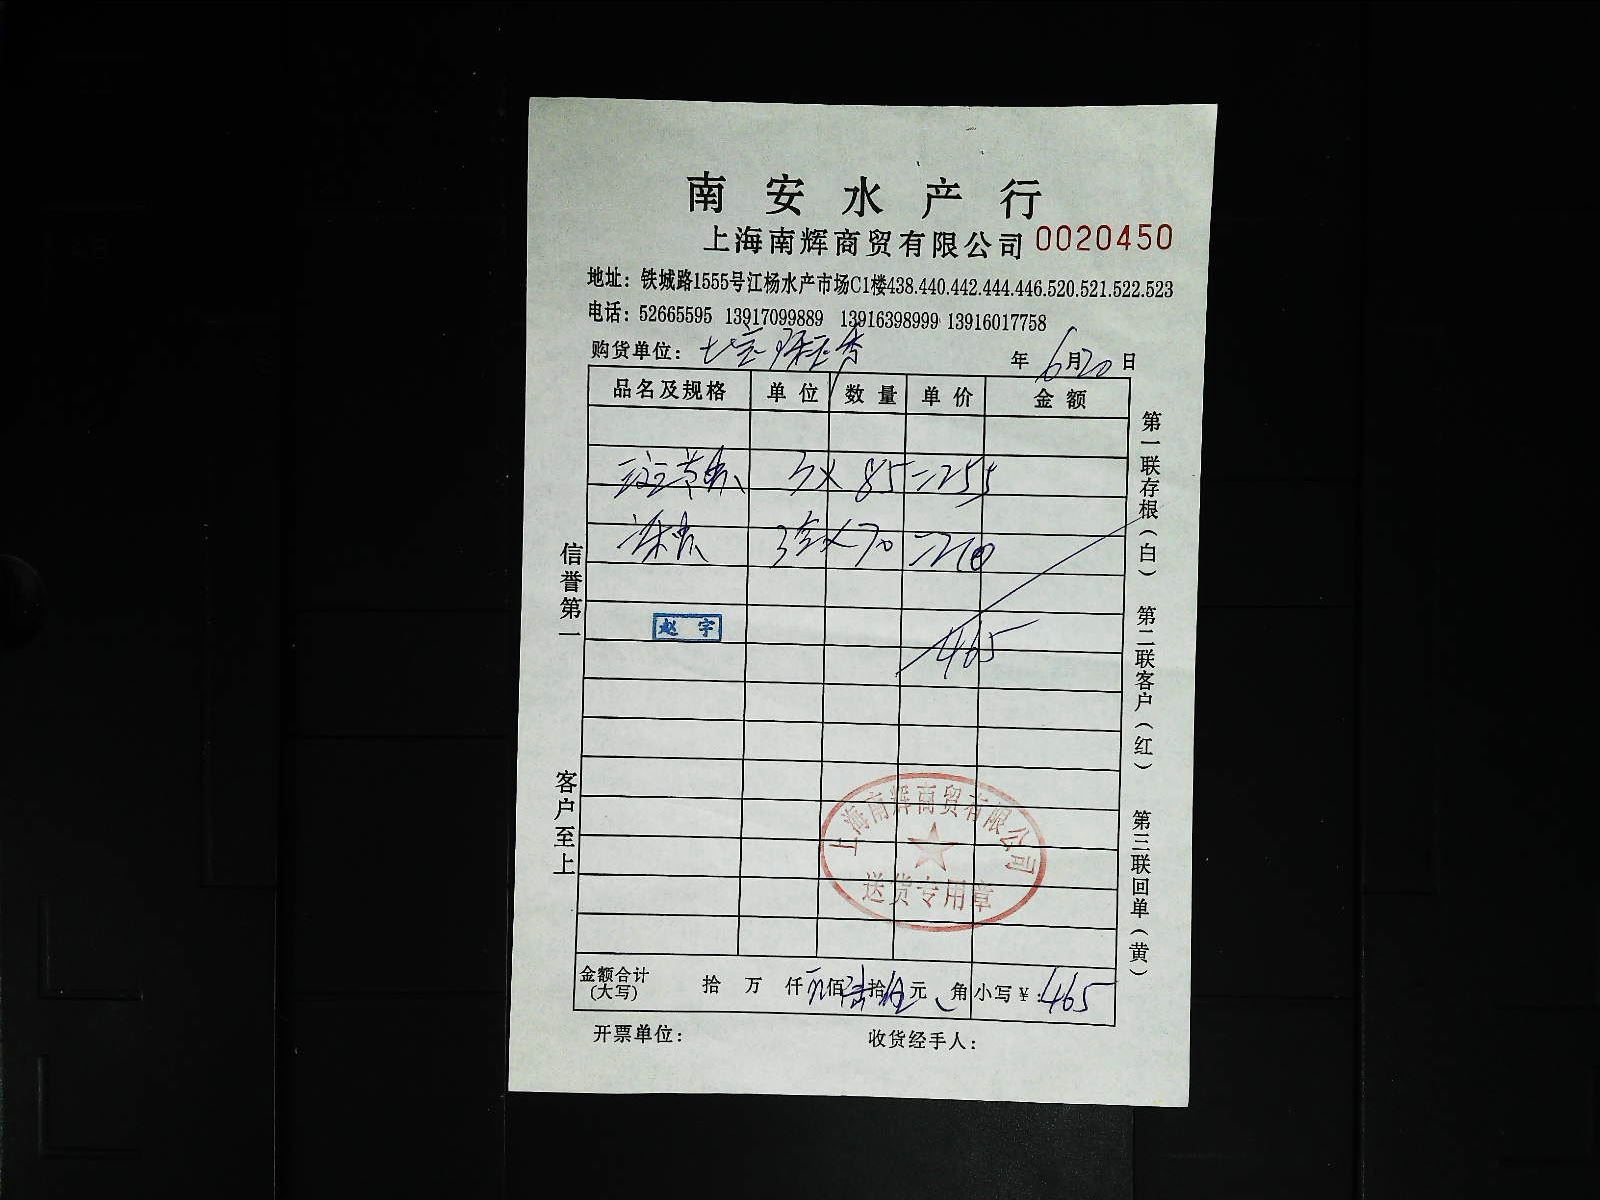 南安水产行
上海南辉商贸有限公司 0020450
地址：铁城路1555号江杨水产市场C1楼438.440.442.444.446.520.521.522.523
电话：52665595 13917099889 13916398999 13916017758
购货单位： 年 6月20日
品名及规格 单位 数量 单价 金额
3 × 85 = 255
3 × 70 = 210
赵宇
465
上海南辉商贸有限公司
送货专用章
金额合计(大写) 拾 万 仟 佰 拾 元 角 小写￥：465
开票单位： 收货经手人：
信誉第一
客户至上
第一联存根(白)
第二联客户(红)
第三联回单(黄)